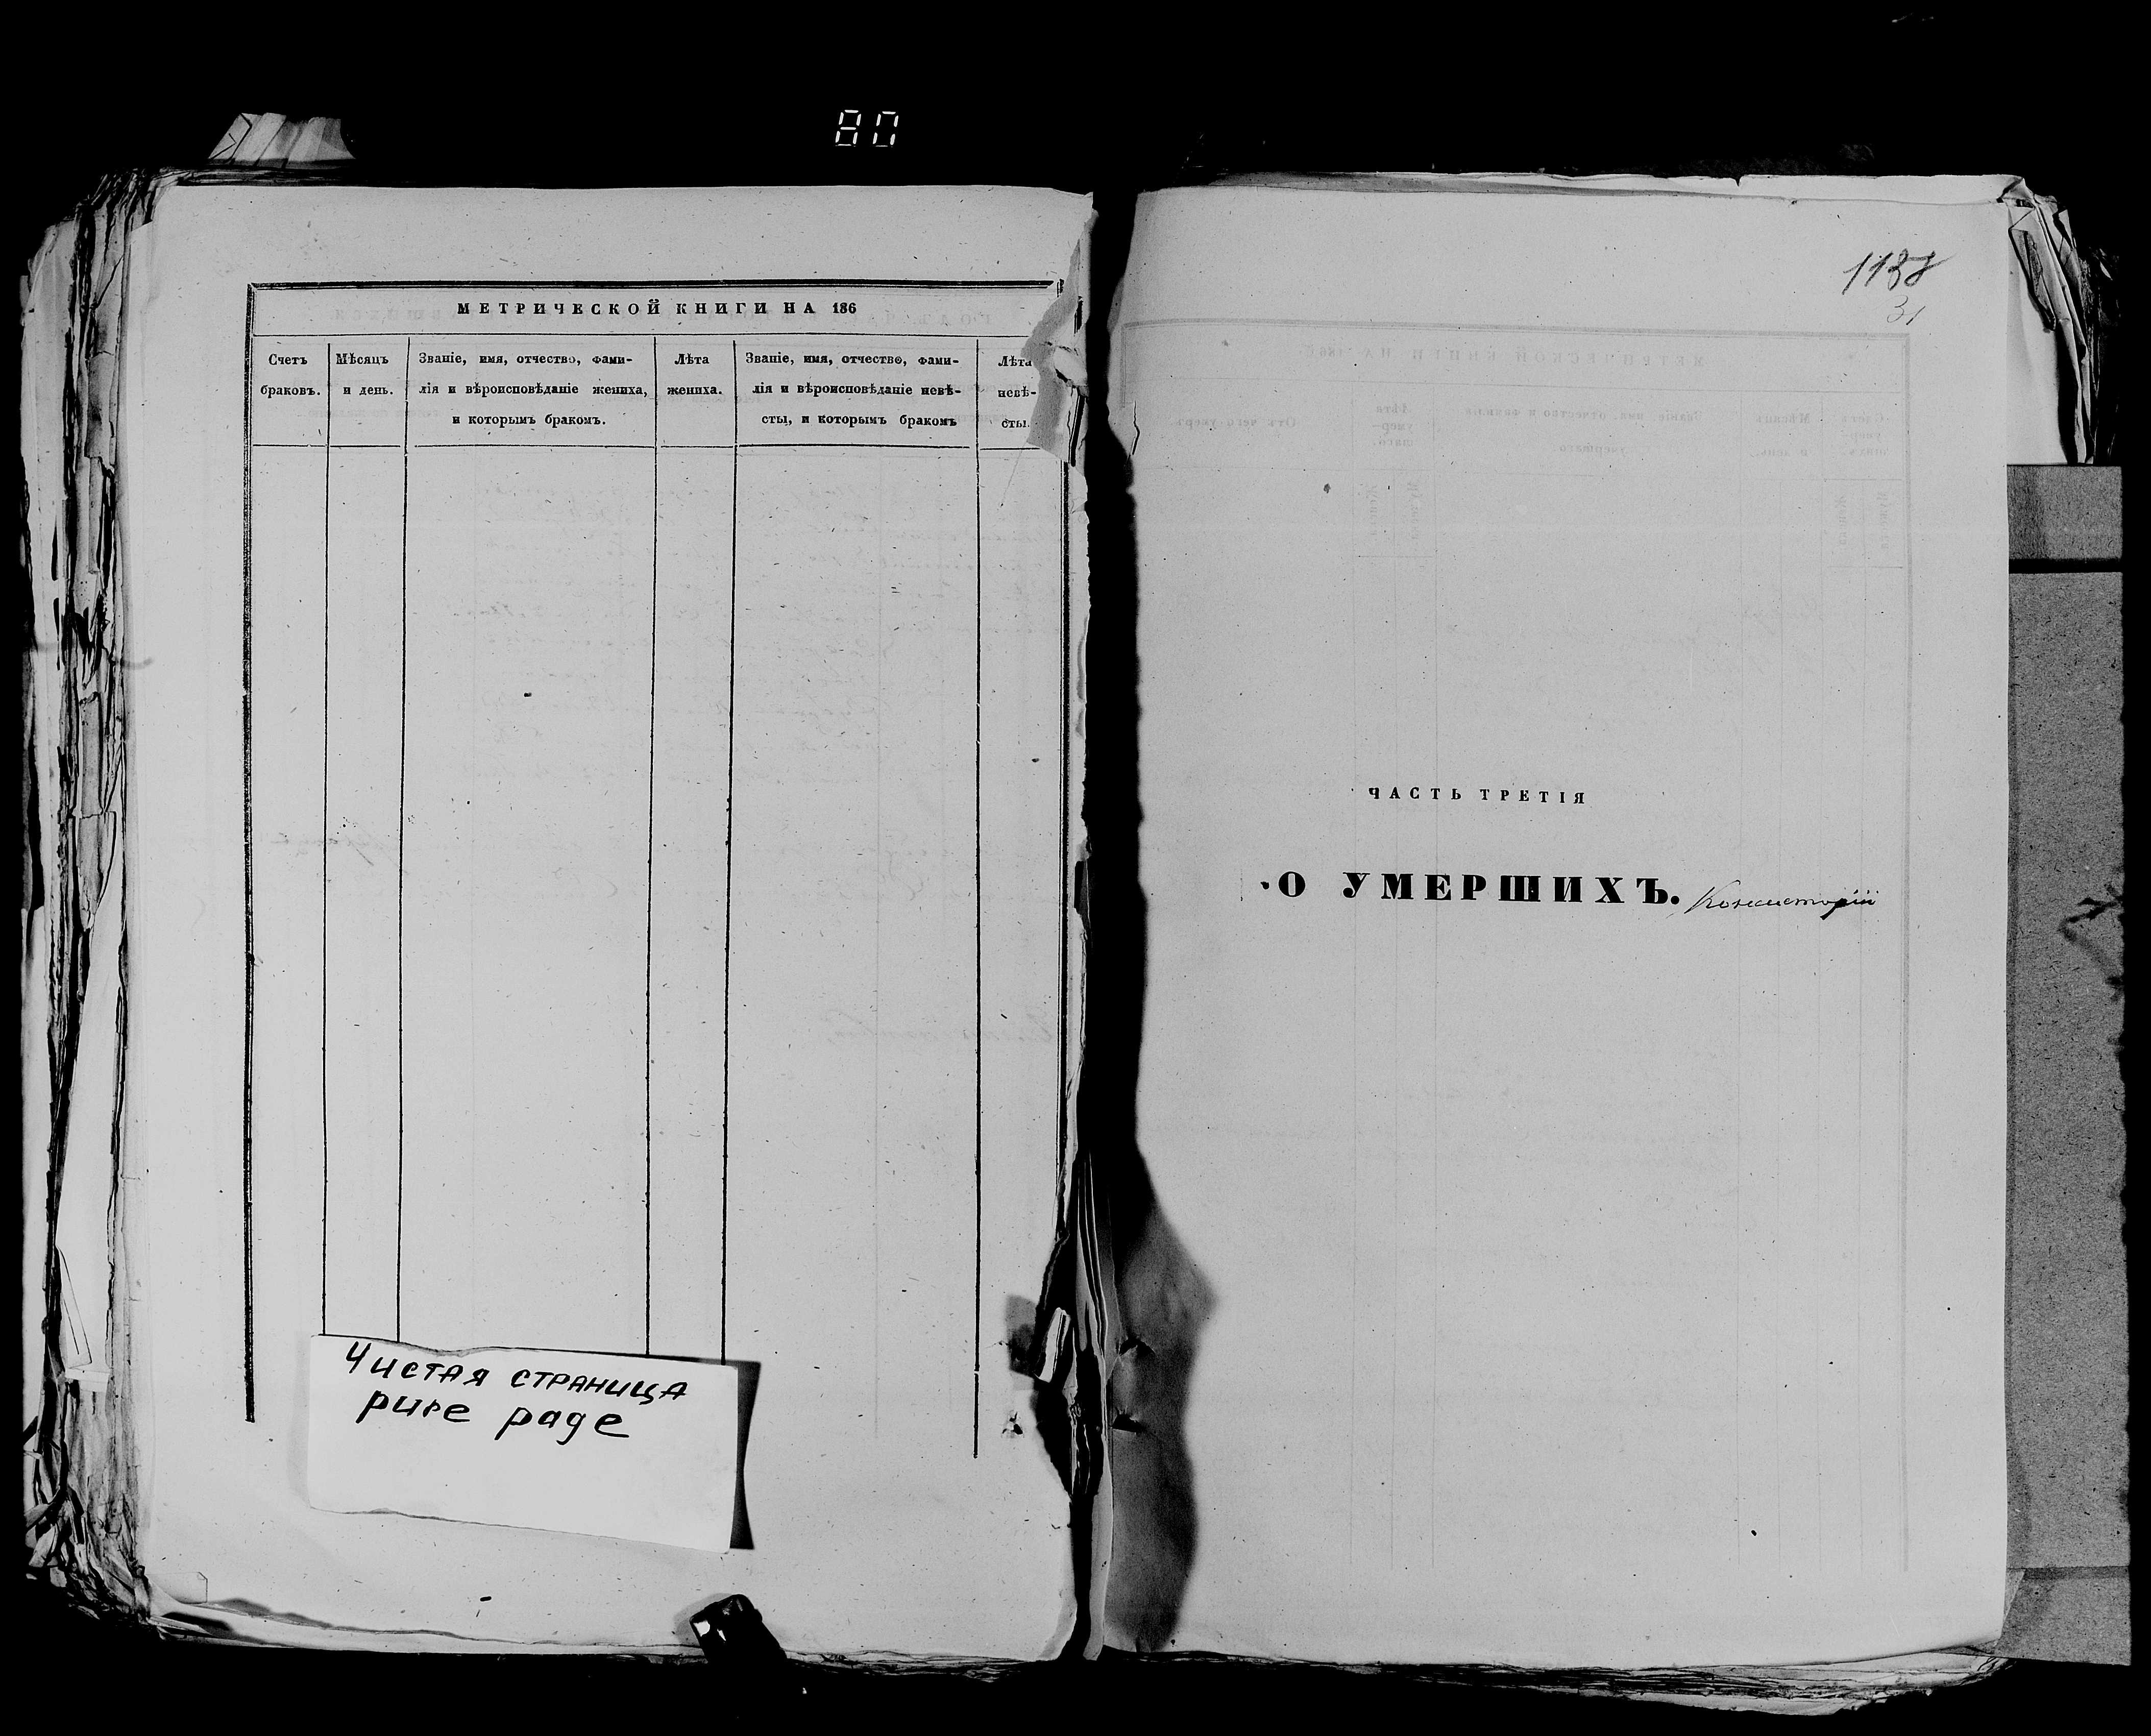 80
МЕТРИЧЕСКОЙ КНИГИ НА 186
Счетъ браковъ.
Мѣсяцъ и день.
Званіе, имя, отчество, фами-
лія и вѣроисповѣданіе жениха,
и которымъ бракомъ.
Лѣта жениха.
Званіе, имя, отчество, фами-
лія и вѣроисповѣданіе невѣ-
сты, и которымъ бракомъ
Лѣта невѣ-
сты.
Чистая страница
pure page
31
ЧАСТЬ ТРЕТІЯ
О УМЕРШИХЪ.